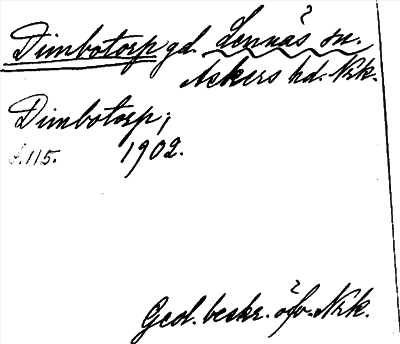 Dimbotorp gd. Lennäs sn.
Askers hd. Nrk.
Dimbotorp;
s. 115. 1902.
Geol. beskr. öfv. Nrk.